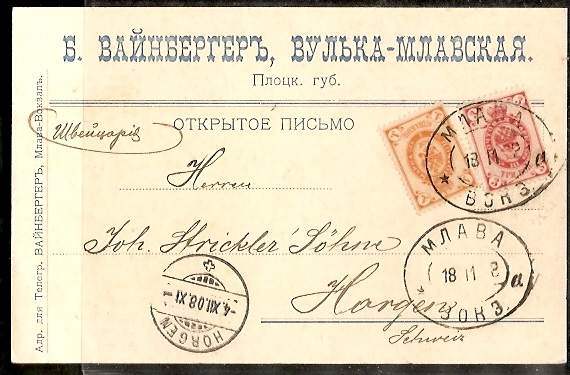 Б. ВАЙНБЕРГЕРЪ, ВУЛЬКА-МЛАВСКАЯ.
Плоцк. губ.
Адр. для Телегр. ВАЙНБЕРГЕРЪ, Млава-Вокзалъ.
Швейцарія
ОТКРЫТОЕ ПИСЬМО
МЛАВА
18 11
а
ВОКЗ.
Herren
Joh. Strickler Söhne
МЛАВА
18 11
а
ВОКЗ.
-4.XII.08.XI-
HORGEN
Horgen
Schweiz